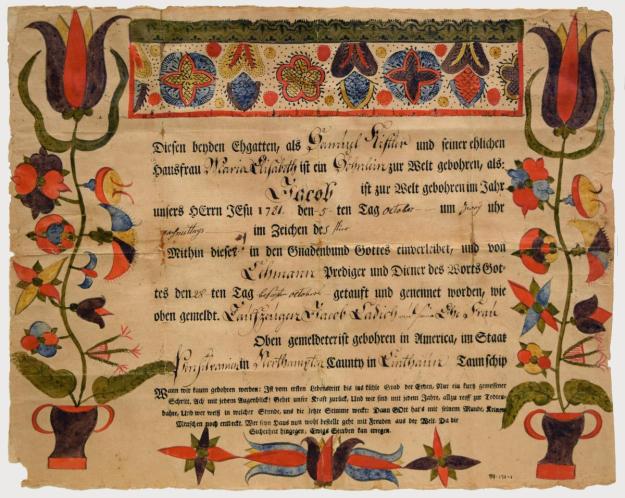 Diesen beyden Ehgatten, als Samuel Kistler und seiner ehlichen
Hausfrau Maria Elisabeth ist ein Söhnlein zur Welt gebohren, als:
Jacob ist zur Welt gebohren im Jahr
unsers HErrn JEsu 1781 den 5 ten Tag october um uhr
im Zeichen des
Mithin dieser in den Gnadenbund Gottes einverleibet, und von
Lehmann Prediger und Diener des Worts Got-
tes den 28 ten Tag october getauft und genennet worden, wie
oben gemeldt. Taufzeugen Jacob Ladich und seine Ehe Frau
Oben gemeldeter ist gebohren in America, im Staat
Pensilvanien in Northampton Caunty in Taunschip
Wann wir kaum gebohren werden: Ist vom ersten Lebenstritt bis ins kühle Grab der Erden, Nur ein kurz gemessner
Schritt, Ach mit jedem Augenblick! Gehet unsre Kraft zurück, Und wir sind mit jedem Jahre, Allzu reiff zur Todten-
bahre. Und wer weiß in welcher Stunde, uns die letzte Stimme weckt: Dann GOtt hat's mit seinem Munde, Keinem
Menschen noch entdeckt. Wer sein Haus nun wohl bestellt geht mit Freuden aus der Welt. Da die
Sicherheit hingegen, Ewigs Sterben kan erregen.